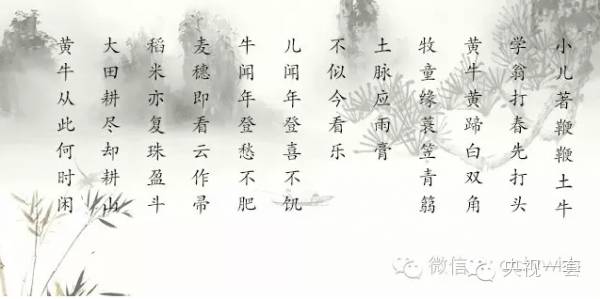 小儿著鞭鞭土牛
学翁打春先打头
黄牛黄蹄白双角
牧童缘蓑笠青篛
土脉应雨膏
不似今看乐
儿闻年登喜不饥
牛闻年登愁不肥
麦穗即看云作帚
稻米亦复珠盈斗
大田耕尽却耕山
黄牛从此何时闲
微信
央视一套